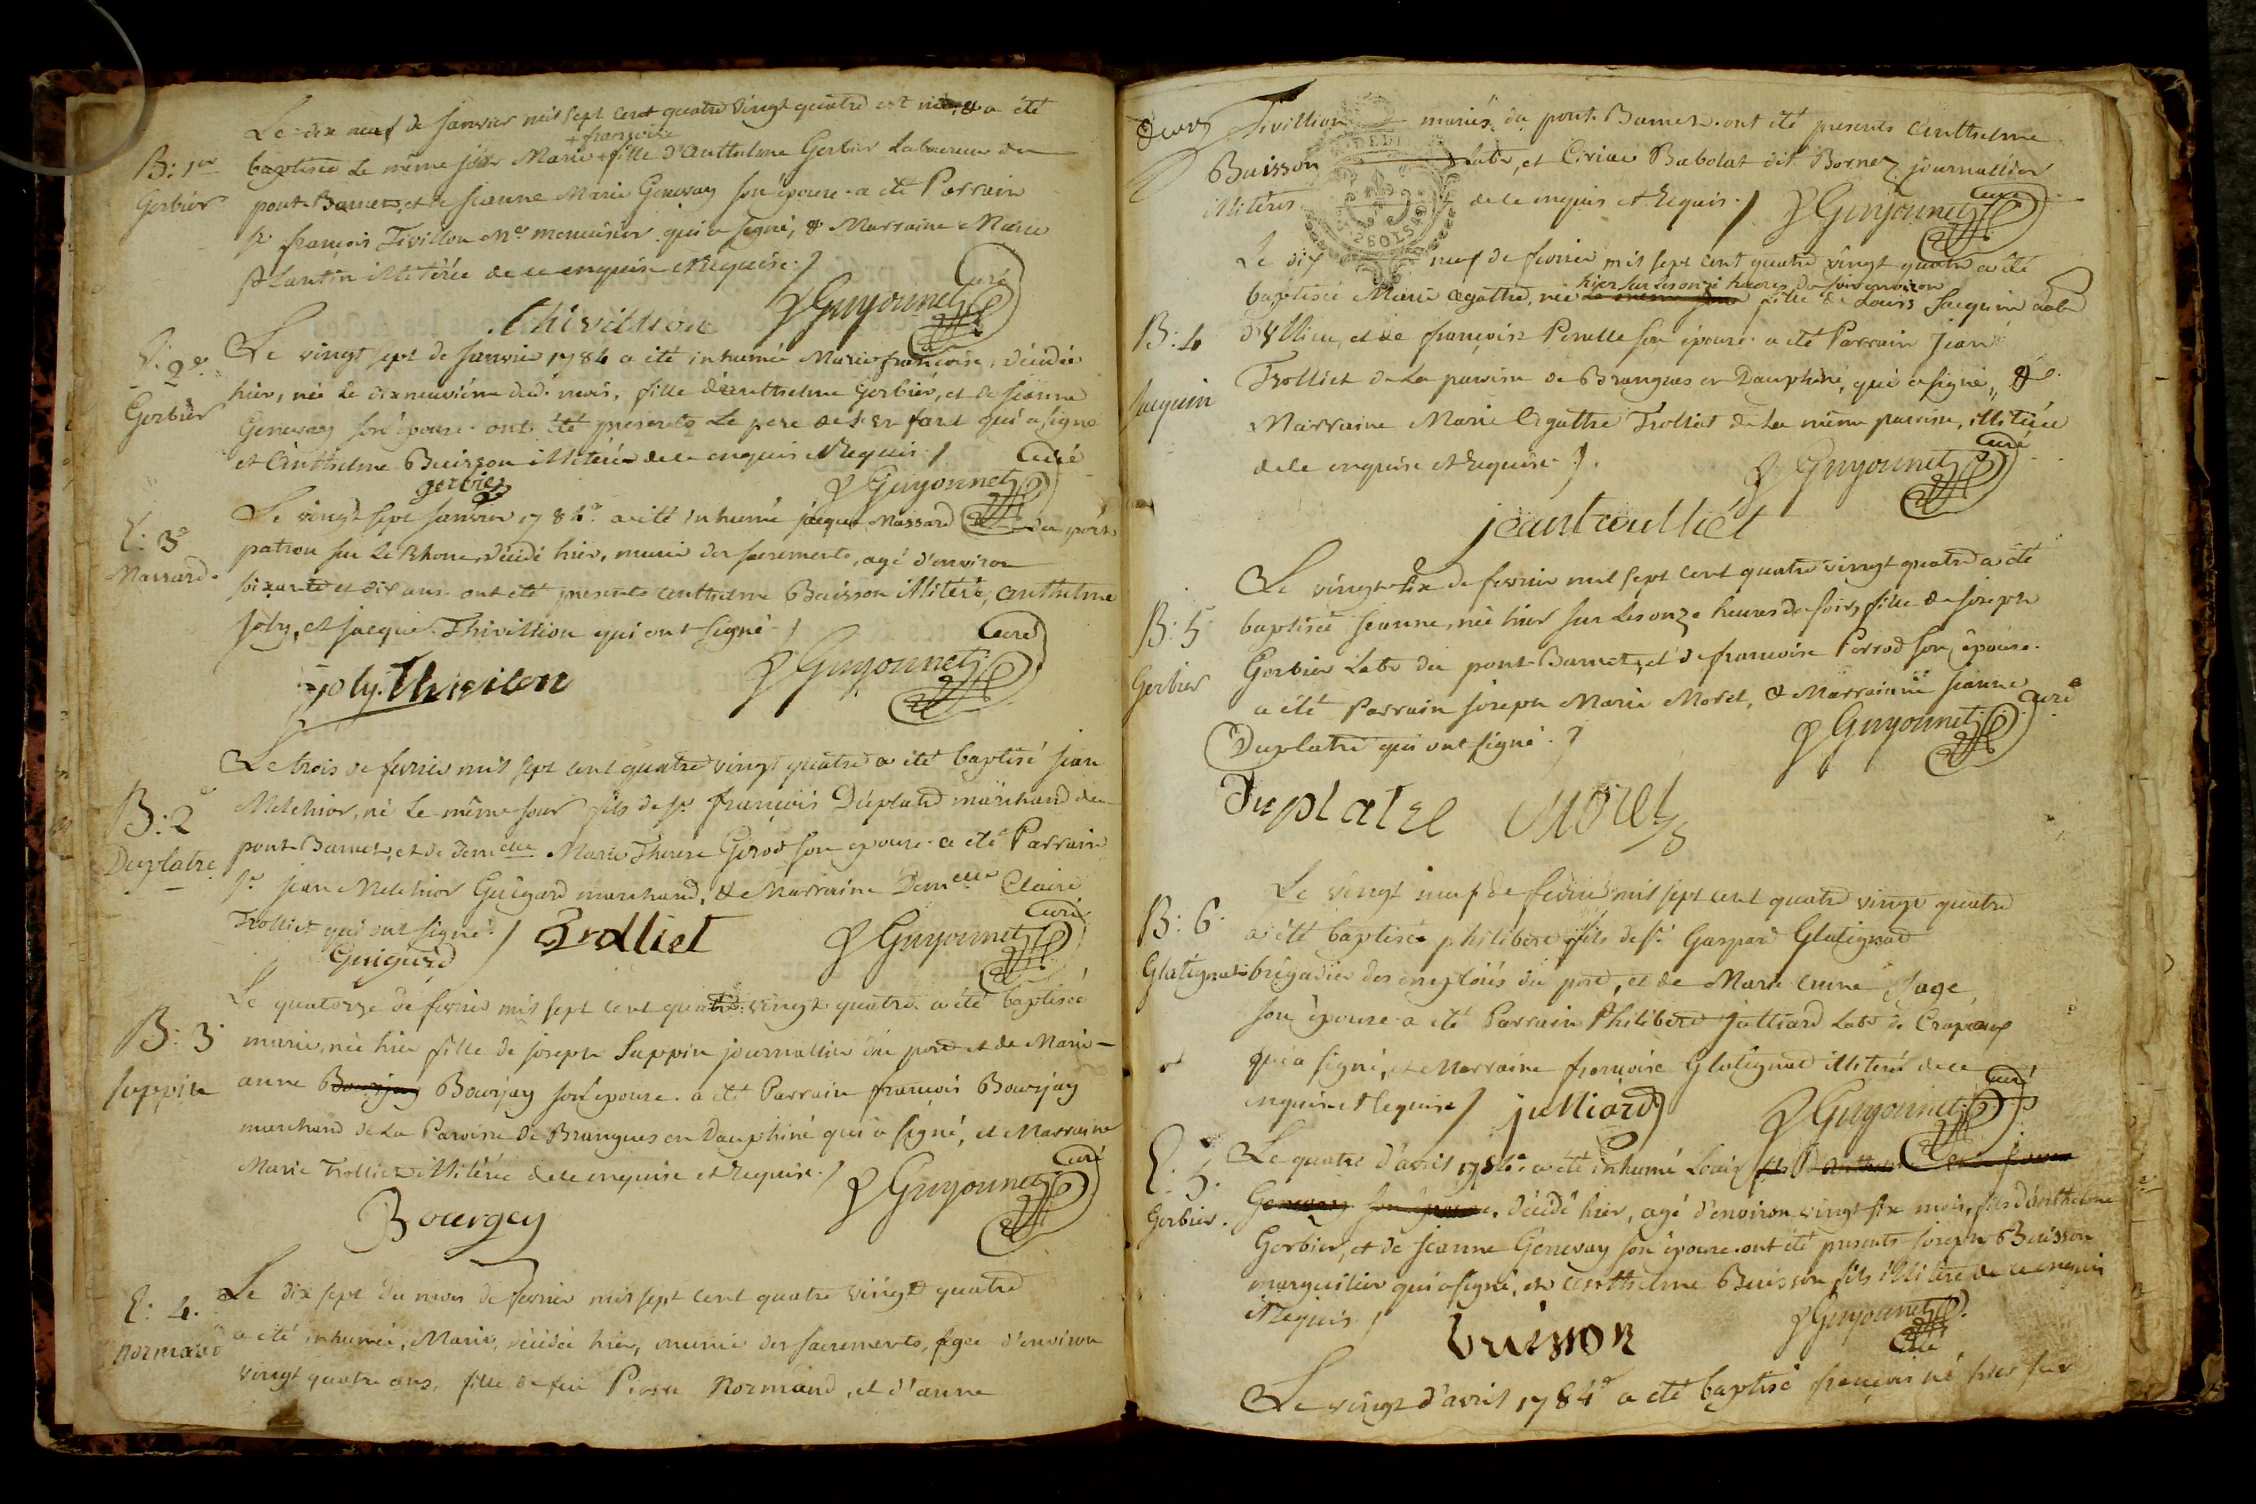 Le dix neuf de Janvier mil sept cent quatre vingt quatre est née, & a été
B: 1er
+ françoise
baptisée le même jour Marie + fille d'Anthelme Gerbier Laboureur du
Gerbier
pont Bamet, et de Jeanne Marie Genevay son épouse. a été Parrain
Sr. françois Tivillon Me. menuisier qui a signé, & Marraine Marie
Plantin illitérée de ce enquise et Requise. /
Thivillion P Guyonnet Curé
Le vingt sept de Janvier 1784 a été inhumée Marie françoise, décédée
E: 2e.
Gerbier
hier, née le dix neuvième dud. mois, fille d'anthelme Gerbier, et de Jeanne
Genevay son épouse. ont été presents Le pere de l'enfant qui a signé
et Anthelme Buisson illitérés de ce enquis & Requis. /
gerbier P Guyonnet Curé
Le vingt sept Janvier 1784 a été inhumé jacque Massard du port
E: 3e
Massard.
patron sur le Rhone, décédé hier, muni des sacrements, agé d'environ
soixante et dix ans. ont été presents anthelme Buisson illitéré, anthelme
Joly, et jacque Thivillion qui ont signé. /
joly. Thivilion P Guyonnet Curé
Le trois de fevrier mil sept cent quatre vingt quatre a été baptisé jean
B: 2e
Duplatre
Melchior, né le même jour fils de Sr. françois Duplatre marchand du
pont Bamet, et de Demelle Marie Therese Girod son epouse. a été Parrain
Sr. jean Melchior Guigard marchand, & Marraine Demelle Claire
Trolliet qui ont signé. /
Guigard Trolliet P Guyonnet Curé
Le quatorze de fevrier mil sept cent quatre vingt quatre a été baptisée
B: 3.
Suppin
marie, née hier fille de joseph Suppin journallier du port et de Marie
anne Bourjay Bourjay son épouse. a été Parrain françois Bourjay
marchand de La Paroisse de Brangues en Dauphiné qui a signé, et Marraine
Marie Trolliet illitérée de ce enquise et Requise. /
Bourgey P Guyonnet Curé
Le dix sept du mois de fevrier mil sept cent quatre vingt quatre
E: 4.
normand
a été inhumée, Marie, décédée hier, munie des sacrements, agée d'environ
vingt quatre ans, fille de feu Pierre Normand, et d'anne
Tivillion mariés du pont Bamet. ont été presents Anthelme
Buisson Labr, et Ciriac Babolat dit Bornez journallier
illitérés de ce enquis et Requis. / P Guyonnet Curé
2 SOLS
Le dix neuf de fevrier mil sept cent quatre vingt quatre a été
hier sur les onze heures du soir environ
baptisée Marie Agathe, née fille de Louis Jacquin Labr
B: 4
Jacquin
d'Illieu, et de françoise Perulle son épouse. a été Parrain Jean
Trolliet de La paroisse de Brangues en Dauphiné, qui a signé, &
Marraine Marie Agathe Trolliet de La même paroisse, illitérée
de ce enquise et Requise. /.
jean trolliet P Guyonnet Curé
Le vingt six de fevrier mil sept cent quatre vingt quatre a été
B: 5
Gerbier
baptisée Jeanne, née hier sur les onze heures du soir, fille de joseph
Gerbier Labr du pont Bamet, et de francoise Perrod son épouse.
a été Parrain joseph Marie Morel, & Marrainne jeanne
Duplatre qui ont signé. /
Duplatre Morel P Guyonnet Curé
Le vingt neuf de fevrier mil sept cent quatre vingt quatre
B: 6.
Glatignat
a été baptisé philibert fils de Sr. Gaspard Glatignat
brigadier des emploiés du port, et de Marie anne Sage
son épouse. a été Parrain Philibert Julliard Labr de Crapeaux
qui a signé, et Marraine françoise Glatignat illitérée de ce
enquise & Requise / julliard P Guyonnet Curé
Le quatre d'avril 1784 a été inhumé Louis
E: 5.
Gerbier.
Genevay son épouse, décédé hier, agé d'environ vingt six mois, fils d'anthelme
Gerbier, et de Jeanne Genevay son épouse. ont été presents Joseph Buisson
marguilier qui a signé, et anthelme Buisson fils illitéré de ce enquis
& Requis. /
buisson P Guyonnet Curé
Le vingt d'avril 1784 a été baptisé françois né hier sur